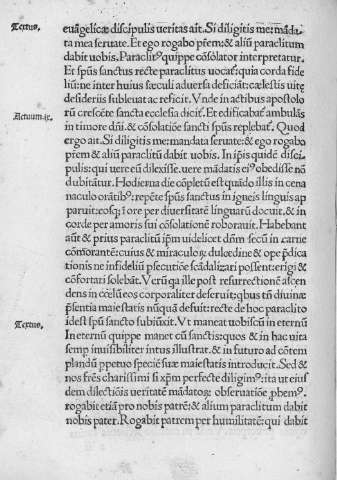 Textus.
euāgelicæ discipulis ueritas ait. Si diligitis me: mādata
mea seruate. Et ego rogabo p̄rem: & aliū paraclitum
dabit uobis. Paraclitꝰ quippe cōsolator interpretatur.
Et sp̄us sanctus recte paraclitus uocaŧ: quia corda fideliū:
ne inter huius sæculi aduersa deficiāt: cælestis uitę
desideriis subleuat ac reficit. Vnde in actibus apostolorū
Actuum.ix.
crescēte sancta ecclesia diciŧ. Et edificabaŧ ambulās
in timore dn̄i. & cōsolatiōe sancti sp̄us replebaŧ. Quod
ergo ait. Si diligitis me: mandata seruate: & ego rogabo
p̄rem & aliū paraclitū dabit uobis. In ip̄is quidē discipulis:
qui uere eū dilexisse. uere mādatis eiꝰ obedisse nō
dubitātur. Hodierna die cōpletū est quādo illis in cena
naculo orātibꝰ: repēte sp̄us sanctus in igneis linguis apparuit:
eosq; ī ore per diuersitatē linguarū docuit. & in
corde per amoris sui cōsolationē roborauit. Habebant
aūt & prius paraclitū ip̄m uidelicet dn̄m secū in carne
cōmorantē: cuius & miraculoꝝ dulcedine & ope p̄dicationis
ne infideliū p̱secutiōe scādalizari possent: erigi &
cōfortari solebāt. Verū q̄a ille post resurrectionē ascendens
in cœlū eos corporaliter deseruit: qbus tn̄ diuinæ
p̄sentia maiestatis nūquā defuit: recte de hoc paraclito
idest sp̄u sancto subiūxit. Vt maneat uobiscū in eternū
Textus.
In eternū quippe manet cū sanctis: quos & in hac uita
semp inuisibiliter intus illustrat. & in futuro ad cōtemplandū
p̱petuo speciē suæ maiestatis introducit. Sed &
nos fr̄es charissimi si xp̄m perfecte diligimꝰ: ita ut eiusdem
dilectiōis ueritatē mādatoꝝ obseruatiōe ꝓbemꝰ.
rogabit etiā pro nobis patrē: & alium paraclitum dabit
nobis pater. Rogabit patrem per humilitatē: qui dabit